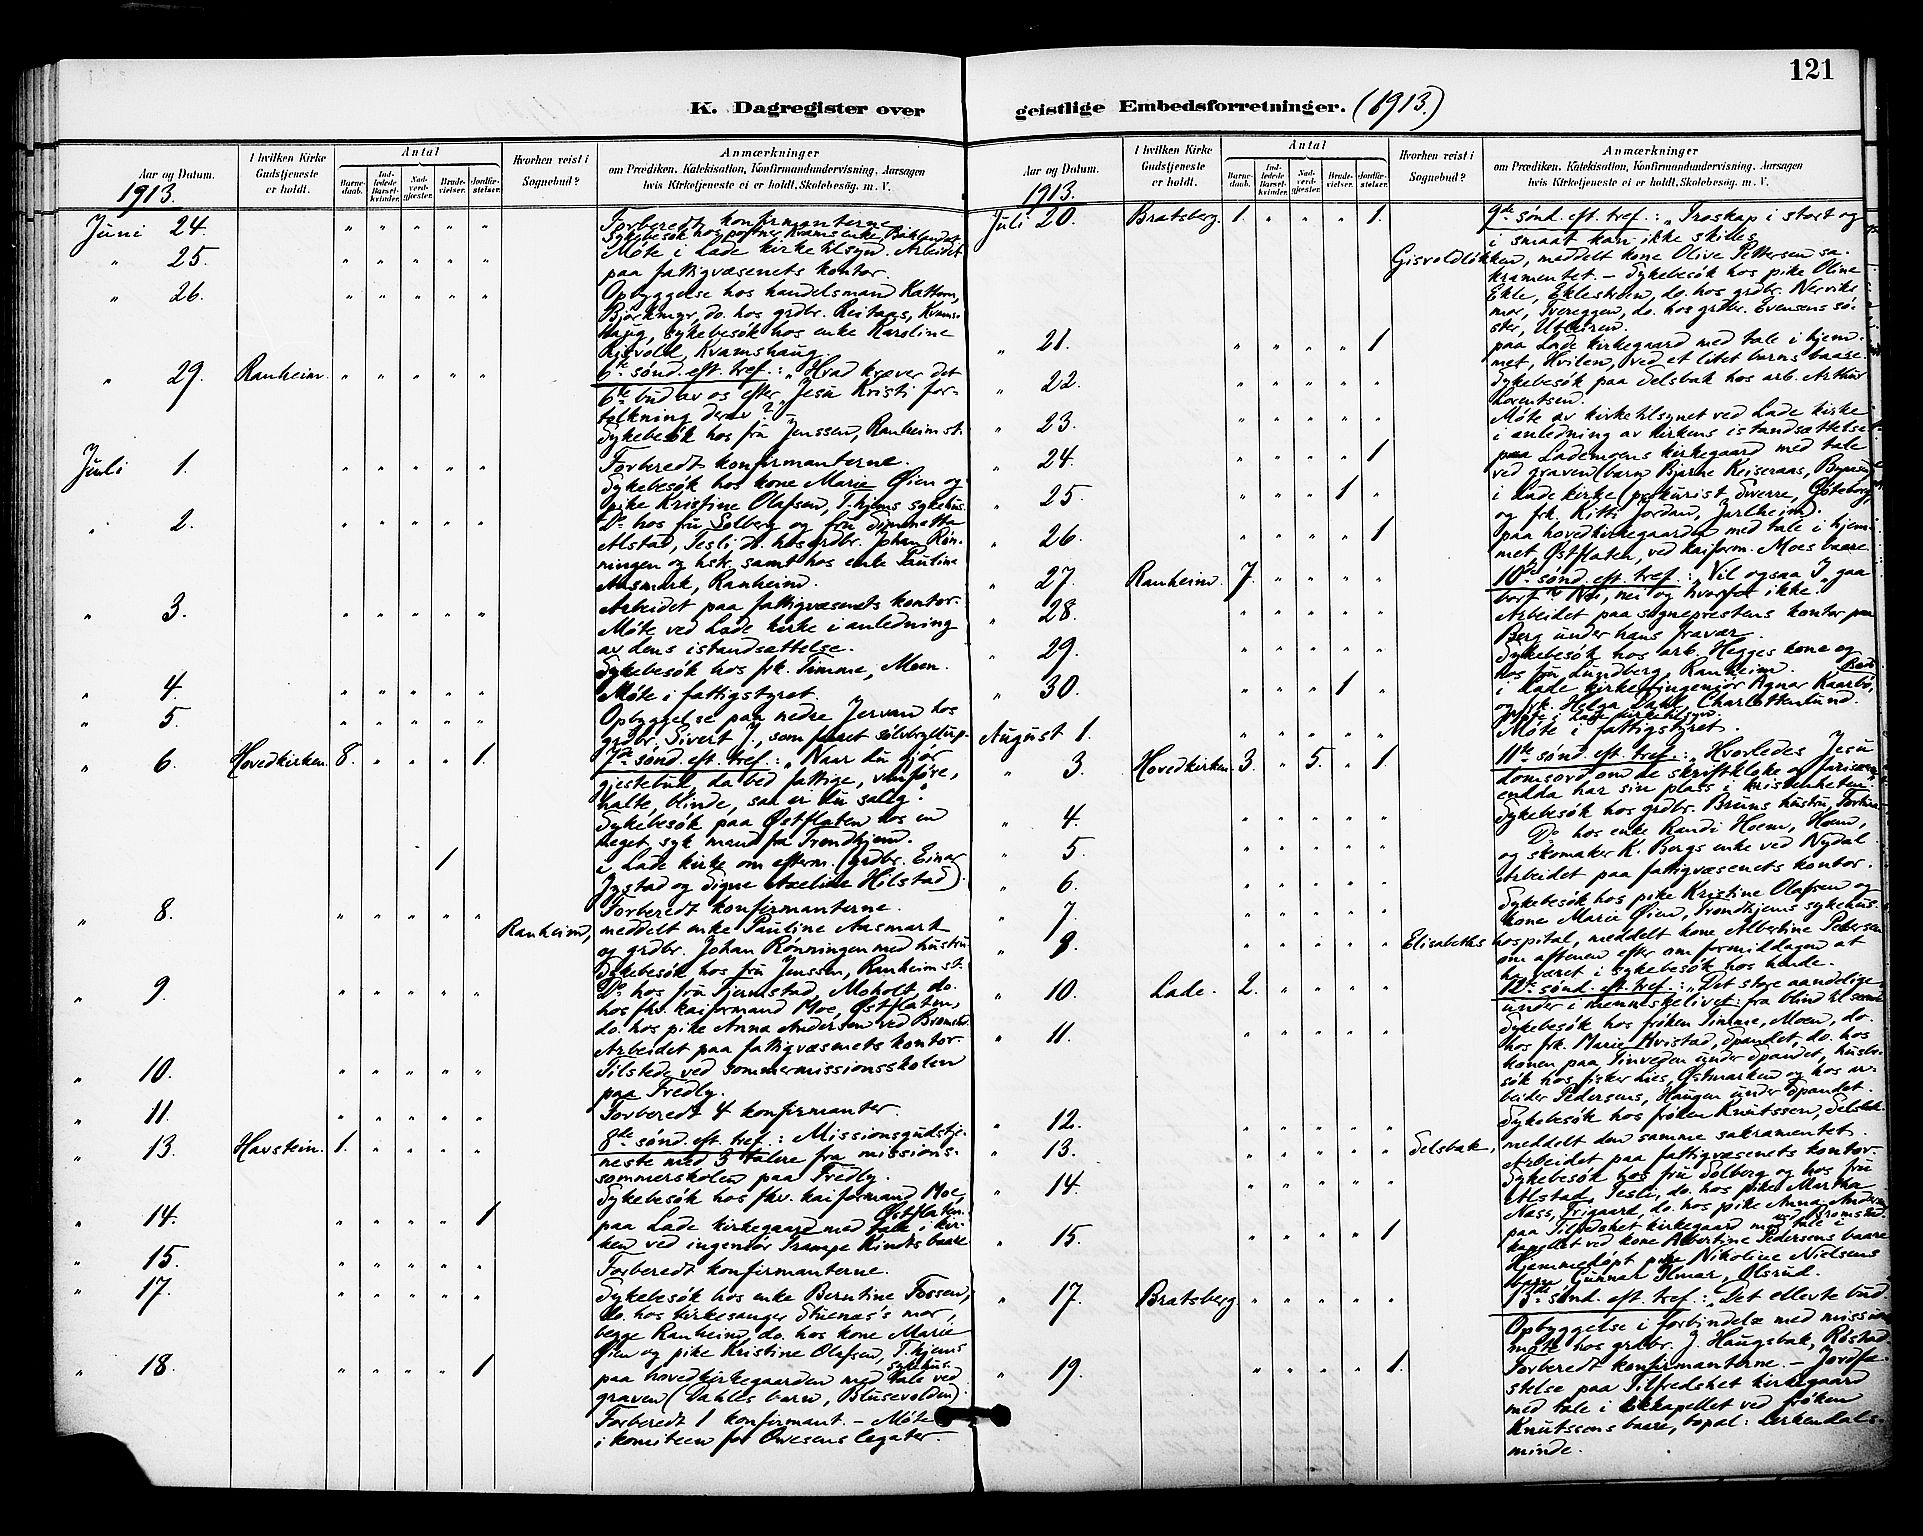 121
K. Dagregister over geistlige Embedsforretninger. (1913.)
Aar og Datum.
I hvilken Kirke Gudstjeneste er holdt.
Antal
Barnedaab.
Indledede Barselkvinder.
Nadverdgjester.
Brudevielser.
Jordfæstelser.
Hvorhen reist i Sognebud?
Anmærkninger
om Prædiken, Katekisation, Konfirmandundervisning, Aarsagen hvis Kirketjeneste ei er holdt, Skolebesøg, m. V.
1913.
Juni 24. " " " " " Forberedt konfirmanterne.
Sykebesök hos portner Kvams enke, Baklandet
" 25. " " " " " Möte i Lade kirketilsyn. Arbeidet
paa fattigvæsenets kontor.
" 26. " " " " " Opbyggelse hos handelsmand Kattem,
Björkmyr, do. hos grdbr. Reitaas, Kvams-
haug, sykebesök hos enke Karoline
Kvamshaug.
" 29. Ranheim. " " " " " 6te sönd. eft. tref.: "Hvad kræver det
6te bud av os efter Jesu Kristi for-
tolkning derav?"
Sykebesök hos fru Jenssen, Ranheim st.
Juli 1. " " " " " Forberedt konfirmanterne.
Sykebesök hos kone Marie Öien og
pike Kristine Olafsen, T.hjems sykehus.
" 2. " " " " " Do hos fru Solberg og fru
Alstad, Tesli, do. hos grdbr. Johan Rön-
ningen og hstr. samt hos enke Pauline
Aasmark, Ranheim.
" 3. " " " " " Arbeidet paa fattigvæsenets kontor.
Möte ved Lade kirke i anledning
av dens istandsættelse.
Sykebesök hos frk. Timme, Moen.
" 4. " " " " " Möte i fattigstyret.
" 5. " " " " " Opbyggelse paa nedre Jervan hos
grdbr. Sivert J., som feiret sölvbryllup.
" 6. Hovedkirken. 8. " " " 1. 7de sönd. eft. tref.: "Naar du gjör
gjestebud, da bed fattige, vanföre,
halte, blinde, saa er du salig."
Sykebesök paa Östflaten hos en
meget syk mand fra Trondhjem.
1 i Lade kirke om efterm. (grdbr. Einar
Jystad og Signe Axeline Hilstad).
" 8. " " " " " Forberedt konfirmanterne.
Ranheim, meddelt enke Pauline Aasmark
og grdbr. Johan Rönningen med hustru
Sykebesök hos fru Jenssen, Ranheim st.
" 9. " " " " " Do. hos fru Gjermstad, Moholt, do.
hos fhv. kaiformand Moe, Östflaten,
do. hos pike Anna Andersen ved Bromstad.
Arbeidet paa fattigvæsenets kontor.
" 10. " " " " " Tilstede ved sommermissionsskolen
paa Fredly.
" 11. " " " " " Forberedt 4 konfirmanter.
" 13. Havstein. 1. " " " " 8de sönd. eft. tref.: Missionsgudstje-
neste med 3 talere fra missions-
sommerskolen paa Fredly.
Sykebesök hos fhv. kaiformand Moe,
Östflaten.
" 14. " " " " 1 paa Lade kirkegaard med tale i kir-
ken ved ingeniör Trampe Kindts baare
" 15. " " " " " Forberedt konfirmanterne.
" 17. " " " " " Sykebesök hos enke Berntine Fossen,
do. hos kirkesanger Stuenæs's mor,
begge Ranheim, do. hos kone Marie
Öien og pike Kristine Olafsen, T.hjems
sykehus.
" 18. " " " " 1 paa hovedkirkegaarden med tale ved
graven (Dahles barn, Blusevolden).
Forberedt 1 konfirmant. – Möte
i komiteen for Owesens legater.
Aar og Datum.
I hvilken Kirke Gudstjeneste er holdt.
Antal
Barnedaab.
Indledede Barselkvinder.
Nadverdgjester.
Brudevielser.
Jordfæstelser.
Hvorhen reist i Sognebud?
Anmærkninger
om Prædiken, Katekisation, Konfirmandundervisning, Aarsagen hvis Kirketjeneste ei er holdt, Skolebesøg, m. V.
1913.
Juli 20. Bratsberg. 1. " " " 1. 9de sönd. eft. tref.: "Troskap i stort og
i smaat kan ikke skilles
Gisvoldlökken, meddelt kone Olive Pettersen sa-
kramentet. – Sykebesök hos pike Oline
Ekle, Eklestrøen, do. hos grdbr. Nervike
mor, Tvereggen, do. hos grdbr. Evensens sö-
ster, Utleiren.
" 21. " " " " 1 paa Lade kirkegaard med tale i hjem-
met, Hvilen, ved et litet barns baare.
" 22. " " " " " Sykebesök paa Selsbak hos arb. Arthur
Lorentsen.
" 23. " " " " " Möte av kirketilsynet ved Lade kirke
i anledning av kirkens istandsættelse
" 24. " " " " 1 paa Lademoens kirkegaard med tale
ved graven (barn Bjarne Reiseraas,
" 25. " " " 1 " i Lade kirke (prokurist Sverre, Göteborg,
og frk. Kitti Jordan, Jarlheim).
" 26. " " " " 1 paa hovedkirkegaarden med tale i hjem-
met, Östflaten, ved kaiform. Moes baare
" 27. Ranheim. 7. " " " " 10de sönd. eft. tref.: "Vil ogsaa I gaa
bort?" Nei, nei og hvorfor ikke.
" 28. " " " " " Arbeidet paa sogneprestens kontor paa
Berg under hans fravær.
" 29. " " " " " Sykebesök hos arb. Hegges kone og
hos fru Lundberg, Ranheim.
" 30. " " " 1 " i Lade kirke (ingeniör Agnar Kaarbö, Bodö
og frk. Helga Dahl, Charlottenlund.
Möte i Lade kirketilsyn.
August 1. Möte i fattigstyret.
" 3. Hovedkirken. 3. " 5. " 1 11te sönd. eft. tref.: "Hvorledes Jesu
domsord om de skriftkloke og farisæere
endda har sin plass i kristenheten."
Sykebesök hos grdbr. Bruns hustru,
" 4. " " " " " Do. hos enke Randi Hoem, Hoem,
og skomaker K. Bergs enke ved Nydal.
" 5. " " " " " Arbeidet paa fattigvæsenets kontor.
" 6. " " " " " Sykebesök hos pike Kristine Olafsen og
" 7. " " " " " kone Marie Öien, Trondhjems sykehus.
" 8. " " " " " Elisabeths hospital, meddelt kone Albertine Pedersen
om aftenen efter om formiddagen at
ha været i sykebesök hos hende.
" 10. Lade. 2. " " " " 12te sönd. eft. tref.: "Det store aandelige
under i menneskelivet: fra blind til seende
" 11. " " " " " Sykebesök hos fröken Timme, Moen, do.
hos frk. Marie Kvistad, Spandet, do. hos
konen paa Tinveden under Spandet, husbe-
sök hos fisker Lies, Östmarken og hos ar-
beider Pedersens, Haugen under Spandet.
" 12. " " " " " Sykebesök hos fröken Knutssen, Selsbak.
" 13. " " " " " Selsbak, meddelt den samme sakramentet.
Arbeidet paa fattigvæsenets kontor.
" 14. " " " " " Sykebesök hos fru Solberg og hos fru
Alstad, Tesli, do. hos pike Martha
Næss, Frigaard, do. hos pike Anna Andersen
ved Bromstad.
" 15. " " " " 1 paa Tilfredshet kirkegaard med tale i
kapellet ved kone Albertine Pedersens baare
Hjemmedöpt pike Nikoline Nielsens
barn Gunnar Ilmar, Olsrud.
" 17. Bratsberg. " " " " " 13de sönd. eft. tref.: "Det ellevte bud
Opbyggelse i forbindelse med mission
möte hos grdbr. J. Haugsbak, Röstad
" 19. " " " " 1. Forberedt konfirmanterne. – Jordfæ-
stelse paa Tilfredshet kirkegaard
med tale i likkapellet ved fröken
Knutssens baare, bopæl: Lerkendals-
minde.